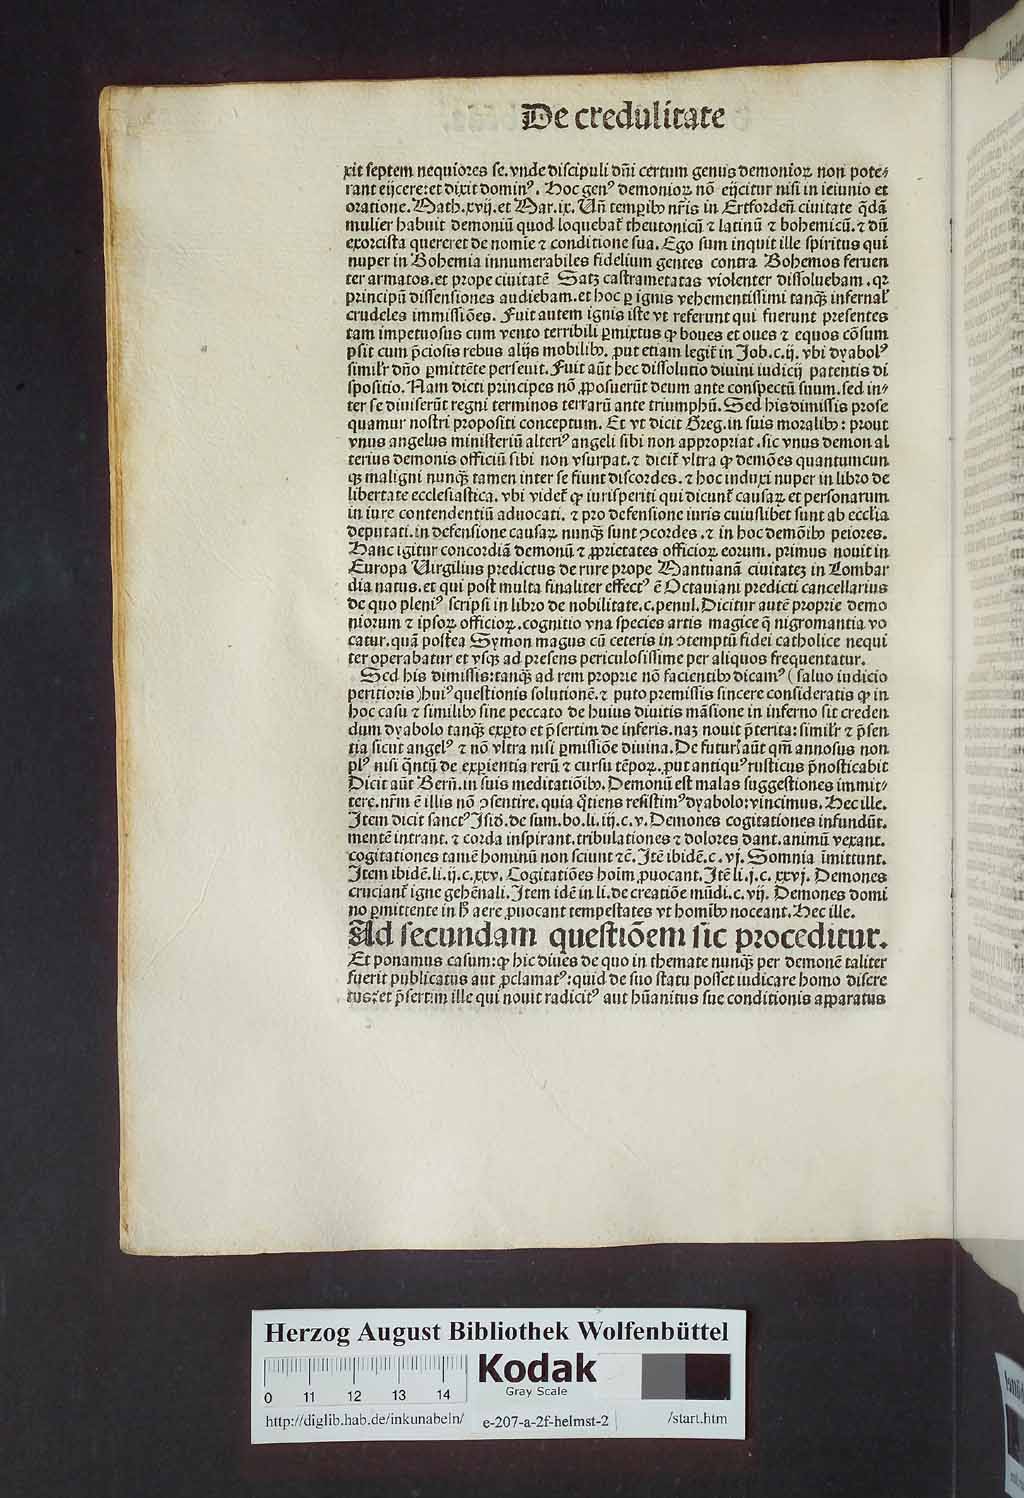 De credulitate
xit septem nequiores se. vnde discipuli dñi certum genus demonioꝝ non pote⸗
rant eijcere: et dixit dominꝰ. Hoc genꝰ demonioꝝ nō eijcitur nisi in ieiunio et
oratione. Math. xvij. et Mar. ix. Uñ tempibꝰ nr̄is in Ertfordeñ ciuitate q̄dā
mulier habuit demoniū quod loquebat̃ theutonicū ⁊ latinū ⁊ bohemicū. ⁊ dū
exorcista quereret de nomīe ⁊ conditione sua. Ego sum inquit ille spiritus qui
nuper in Bohemia innumerabiles fidelium gentes contra Bohemos feruen
ter armatos. et prope ciuitatē Satz castrametatas violenter dissoluebam. qꝛ
principū dissensiones audiebam. et hoc ꝑ ignis vehementissimi tanqꝫ infernaľ
crudeles immissiōes. Fuit autem ignis iste vt referunt qui fuerunt presentes
tam impetuosus cum vento terribili ꝑmixtus ꝙ boues et oues ⁊ equos cōsum
psit cum p̄ciosis rebus alijs mobilibꝰ. ꝓut etiam legit̃ in Job. c. ij. vbi dyabolꝰ
simiľr dño ꝑmittēte perseuit. Fuit aūt hec dissolutio diuini iudicij patentis di
spositio. Nam dicti principes nō ꝓposuerūt deum ante conspectū suum. sed in⸗
ter se diuiserūt regni terminos terrarū ante triumphū. Sed his dimissis prose
quamur nostri propositi conceptum. Et vt dicit Greg. in suis moralibꝰ: prout
vnus angelus ministeriū alteriꝰ angeli sibi non appropriat. sic vnus demon al
terius demonis officiū sibi non vsurpat. ⁊ dicit̃ vltra ꝙ demōes quantumcun
qꝫ maligni nunqꝫ tamen inter se fiunt discordes. ⁊ hoc induxi nuper in libro de
libertate ecclesiastica. vbi videt̃ ꝙ iurisperiti qui dicunt̃ causaꝝ et personarum
in iure contendentiū aduocati. ⁊ pro defensione iuris cuiuslibet sunt ab eccľia
deputati. in defensione causaꝝ nunqꝫ sunt ↄcordes. ⁊ in hoc demōibꝰ peiores.
Hanc igitur concordiā demonū ⁊ ꝓprietates officioꝝ eorum. primus nouit in
Europa Uirgilius predictus de rure prope Mantuanā ciuitateꝫ in Lombar
dia natus. et qui post multa finaliter effectꝰ ē Octauiani predicti cancellarius
de quo pleniꝰ scripsi in libro de nobilitate. c. penul. Dicitur autē proprie demo
niorum ⁊ ipsoꝝ officioꝝ. cognitio vna species artis magice q̄ nigromantia vo
catur. quā postea Symon magus cū ceteris in ↄtemptū fidei catholice nequi
ter operabatur et vsqꝫ ad presens periculosissime per aliquos frequentatur.
Sed his dimissis: tanqꝫ ad rem proprie nō facientibꝰ dicamꝰ (saluo iudicio
peritioris) huiꝰ questionis solutionē. ⁊ puto premissis sincere consideratis ꝙ in
hoc casu ⁊ similibꝰ sine peccato de huius diuitis māsione in inferno sit creden
dum dyabolo tanqꝫ exꝑto et p̄sertim de inferis. naꝫ nouit p̄terita: simiľr ⁊ p̄sen
tia sicut angelꝰ ⁊ nō vltra nisi ꝑmissiōe diuina. De futurꝭ aūt qm̄ annosus non
plꝰ nisi q̄ntū de exꝑientia rerū ⁊ cursu tēpoꝝ. ꝓut antiquꝰ rusticus p̄nosticabit
Dicit aūt Berñ. in suis meditatiōibꝰ. Demonū est malas suggestiones immit⸗
tere. nr̄m ē illis nō ↄsentire. quia q̄tiens resistimꝰ dyabolo: vincimus. Hec ille.
Item dicit sanctꝰ Jsid. de sum. bo. li. iij. c. v. Demones cogitationes infundūt.
mentē intrant. ⁊ corda inspirant. tribulationes ⁊ dolores dant. animū vexant.
cogitationes tamē hominū non sciunt ⁊c̄. Jtē ibidē. c. vj. Somnia īmittunt.
Item ibidē. li. ij. c. xxv. Cogitatiōes hoim ꝓuocant. Jtē li. j. c. xxvj. Demones
cruciant̃ igne gehēnali. Item idē in li. de creatiōe mūdi. c. vij. Demones domi
no ꝑmittente in h̄ aere ꝓuocant tempestates vt homībꝰ noceant. Hec ille.
Ad secundam questiōem sic proceditur.
Et ponamus casum: ꝙ hic diues de quo in themate nunqꝫ per demonē taliter
fuerit publicatus aut ꝓclamatꝰ: quid de suo statu posset iudicare homo discre
tus: et p̄sertim ille qui nouit radicitꝰ aut hūanitus sue conditionis apparatus
Herzog August Bibliothek Wolfenbüttel
Kodak
Gray Scale
0 11 12 13 14
http://diglib.hab.de/inkunabeln/ e-207-a-2f-helmst-2 /start.htm